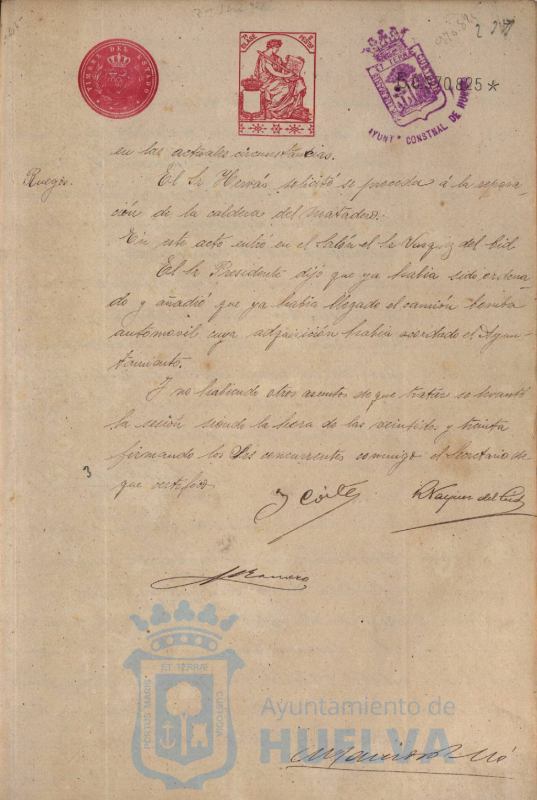 TIMBRE DEL ESTADO
8ª CLASE
PESETAS
ET TERRÆ
AYUNTº CONSTNAL DE HUELVA
0.970.825*
en las actuales circunstancias.
Ruegos.
El Sr Hervás solicitó se proceda á la repara-
ción de la caldera del Matadero.
En este acto entró en el Salón el Sr Vazquez del Cid
El Sr Presidente dijo que ya había sido ordena-
do y añadió que ya había llegado el camión bomba
automovil cuya adquisición había acordado el Ayun-
tamiento.
Y no habiendo otros asuntos de que tratar se levantó
la sesión siendo la hora de las veintidos y treinta
firmando los Sres concurrentes conmigo el Secretario de
que certifico
3
J Corté
R Vazquez del Cid
Romero
ET TERRÆ
PORTUS MARIS
CUSTODIA
Ayuntamiento de
HUELVA